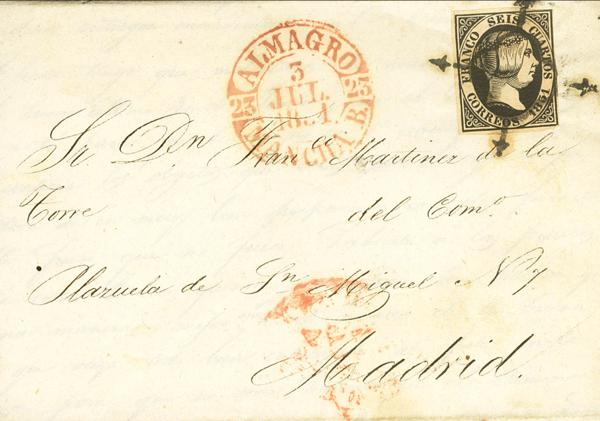 ALMAGRO
3
JUL.
1851
23 23
MANCHA B.
FRANCO SEIS CUARTOS
CORREOS 1851
Sr. Dn Franco Martinez de la
Torre del Como.
Plazuela de Sn Miguel N 7
Madrid.